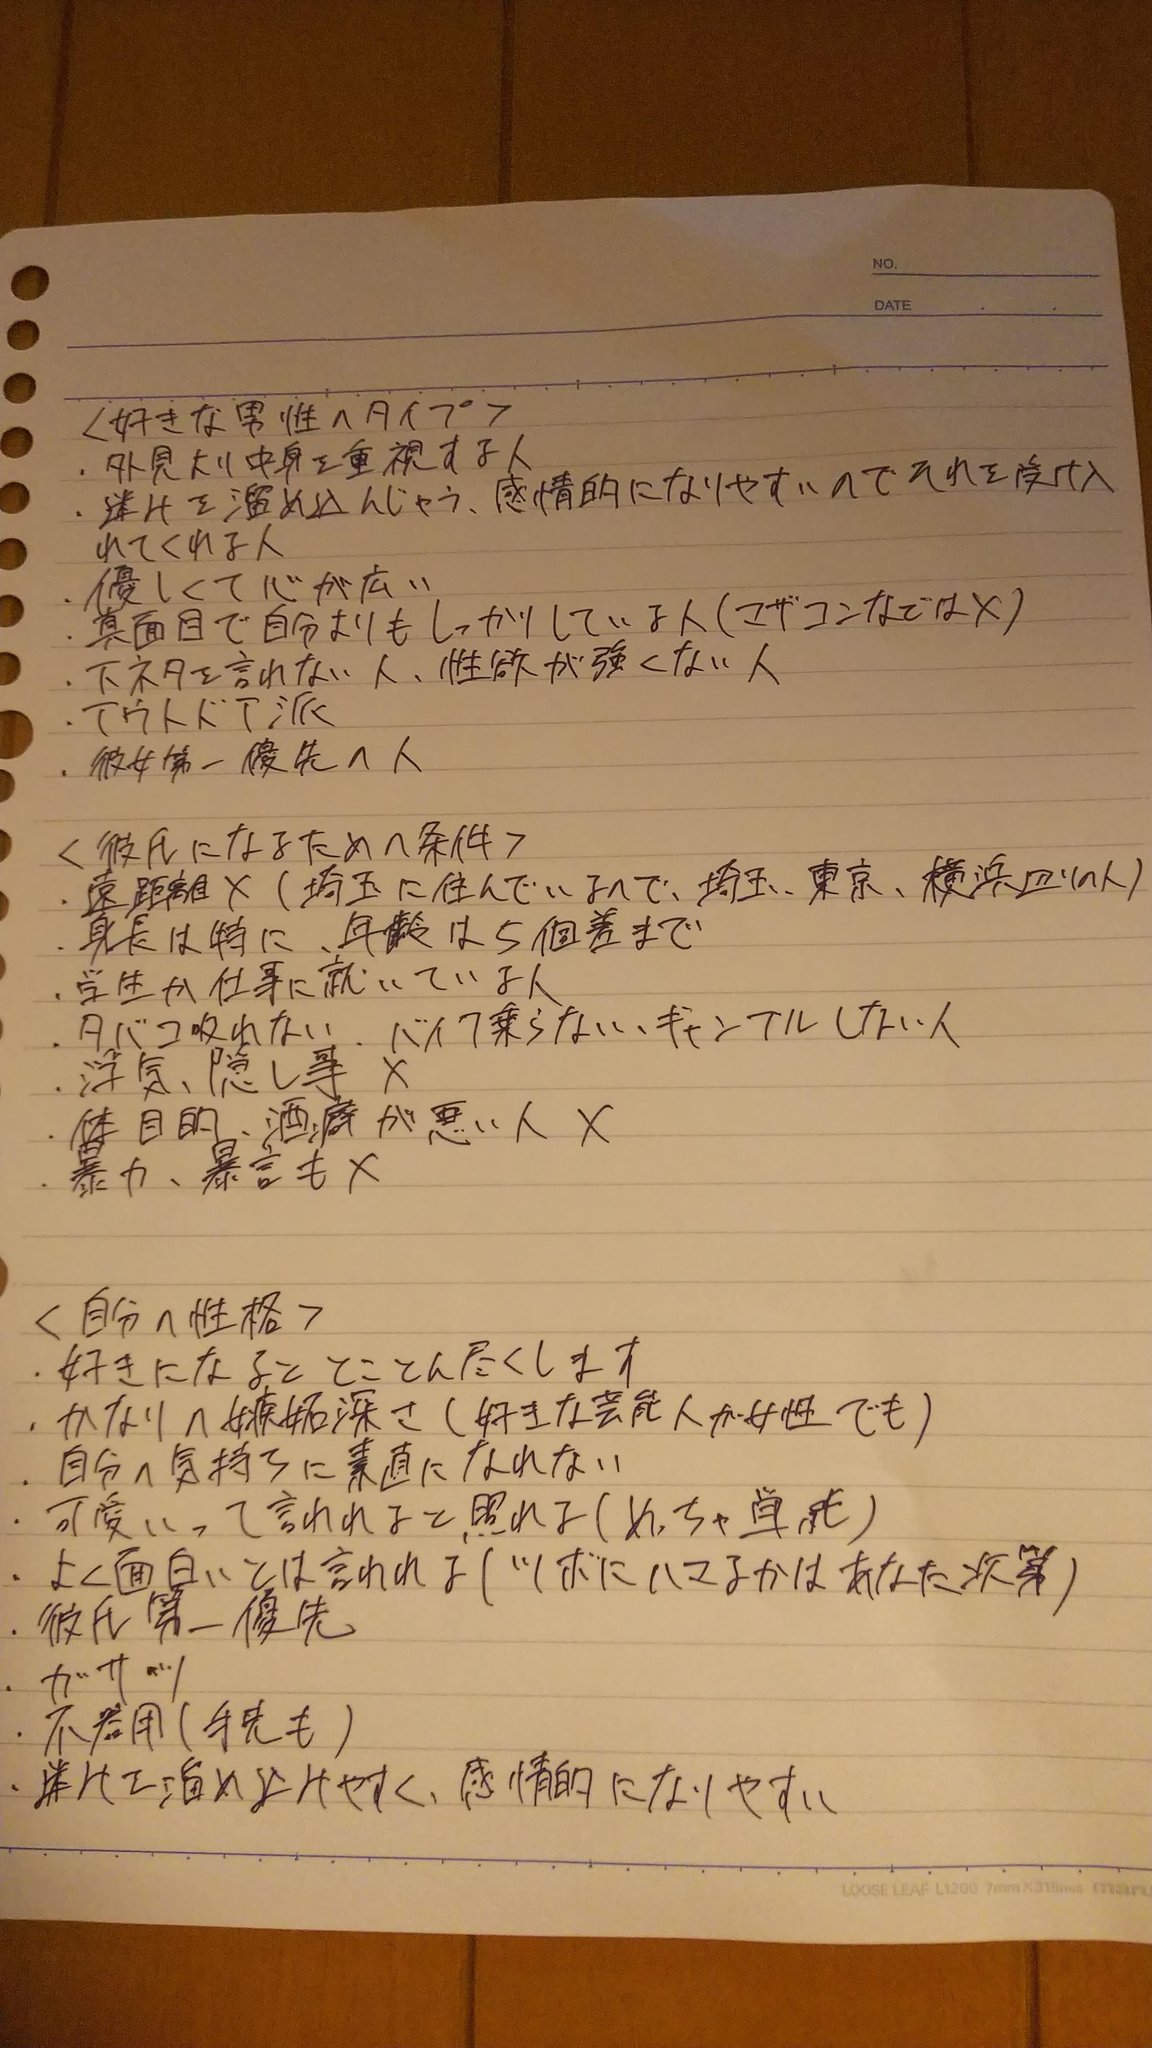 NO.
DATE
<好きな男性のタイプ>
・外見より中身を重視する人
・溜め込んじゃう、感情的になりやすいのでそれを受け入
れてくれる人
・優しくて心が広い
・真面目で自分よりもしっかりしている人(マザコンなどは×)
・下ネタを言わない人、性欲が強くない人
・アウトドア派
・彼女第一優先の人
<彼氏になるための条件>
・遠距離×(埼玉に住んでいるので、埼玉、東京、横浜辺りの人)
・身長は特に、年齢は5個差まで
・学生か仕事に就いている人
・タバコ吸わない、バイク乗らない、ギャンブルしない人
・浮気、隠し事×
・体目的、酒癖が悪い人×
・暴力、暴言も×
<自分の性格>
・好きになるととことん尽くします
・かなりの嫉妬深さ(好きな芸能人が女性でも)
・自分の気持ちに素直になれない
・可愛いって言われると照れる(めっちゃ単純)
・よく面白いとは言われる(ツボにハマるかはあなた次第)
・彼氏第一優先
・ガサツ
・不器用(手先も)
・溜め込みやすく、感情的になりやすい
LOOSE LEAF L1200 7mm×31lines maru